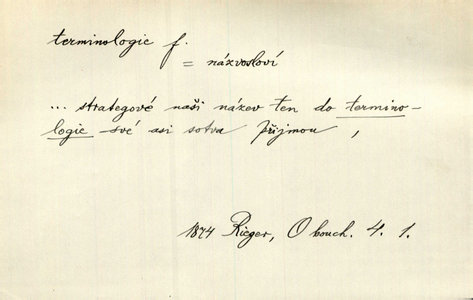 terminologie f.
= názvosloví
... strategové naši název ten do termino-
logie své asi sotva přijmou,
1874 Rieger, O bouch. 4. 1.